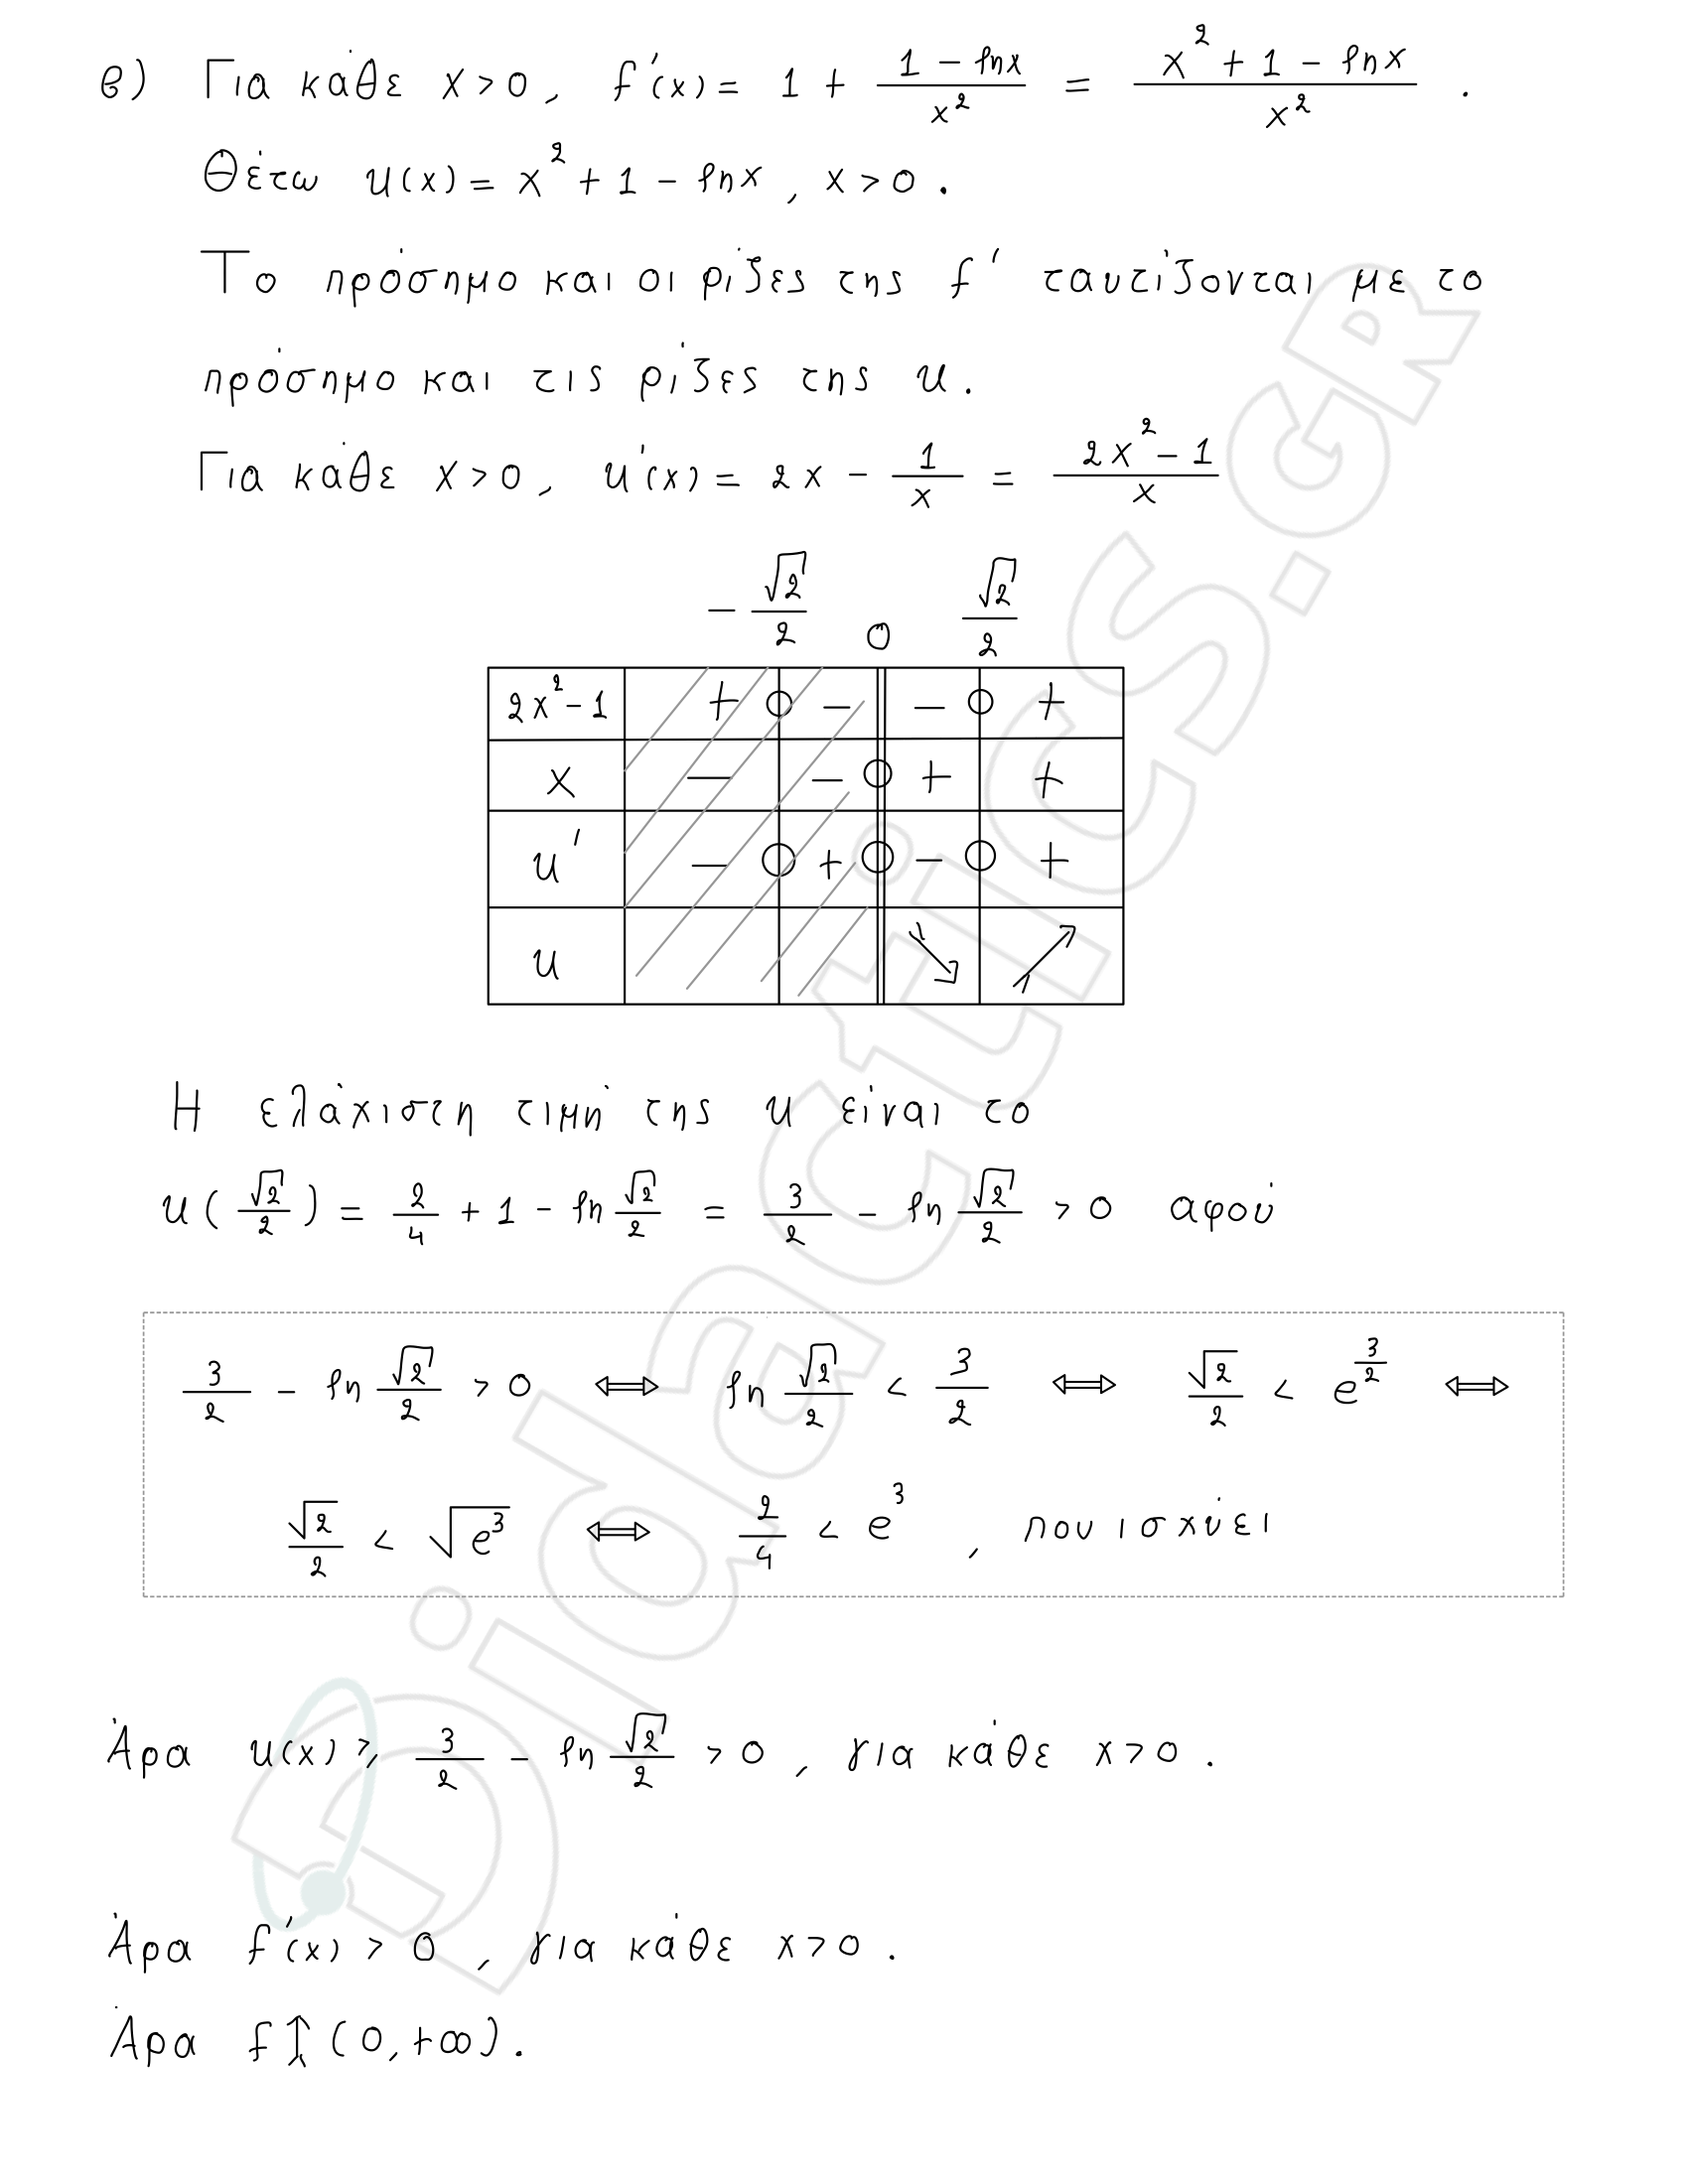 β) Για κάθε x > 0, f'(x) = 1 + (1 - lnx)/x² = (x² + 1 - lnx)/x² .
Θέτω u(x) = x² + 1 - lnx , x > 0 .
Το πρόσημο και οι ρίζες της f' ταυτίζονται με το
πρόσημο και τις ρίζες της u.
Για κάθε x > 0, u'(x) = 2x - 1/x = (2x² - 1)/x
-√2/2 0 √2/2
2x² - 1 + - - +
x - - + +
u' - + - +
u ↘ ↗
Η ελάχιστη τιμή της u είναι το
u(√2/2) = 2/4 + 1 - ln √2/2 = 3/2 - ln √2/2 > 0 αφού
3/2 - ln √2/2 > 0 ⟺ ln √2/2 < 3/2 ⟺ √2/2 < e^(3/2) ⟺
√2/2 < √e³ ⟺ 2/4 < e³ , που ισχύει
Άρα u(x) ≥ 3/2 - ln √2/2 > 0 , για κάθε x > 0 .
Άρα f'(x) > 0 , για κάθε x > 0 .
Άρα f↑(0, +∞) .
Didactics.GR